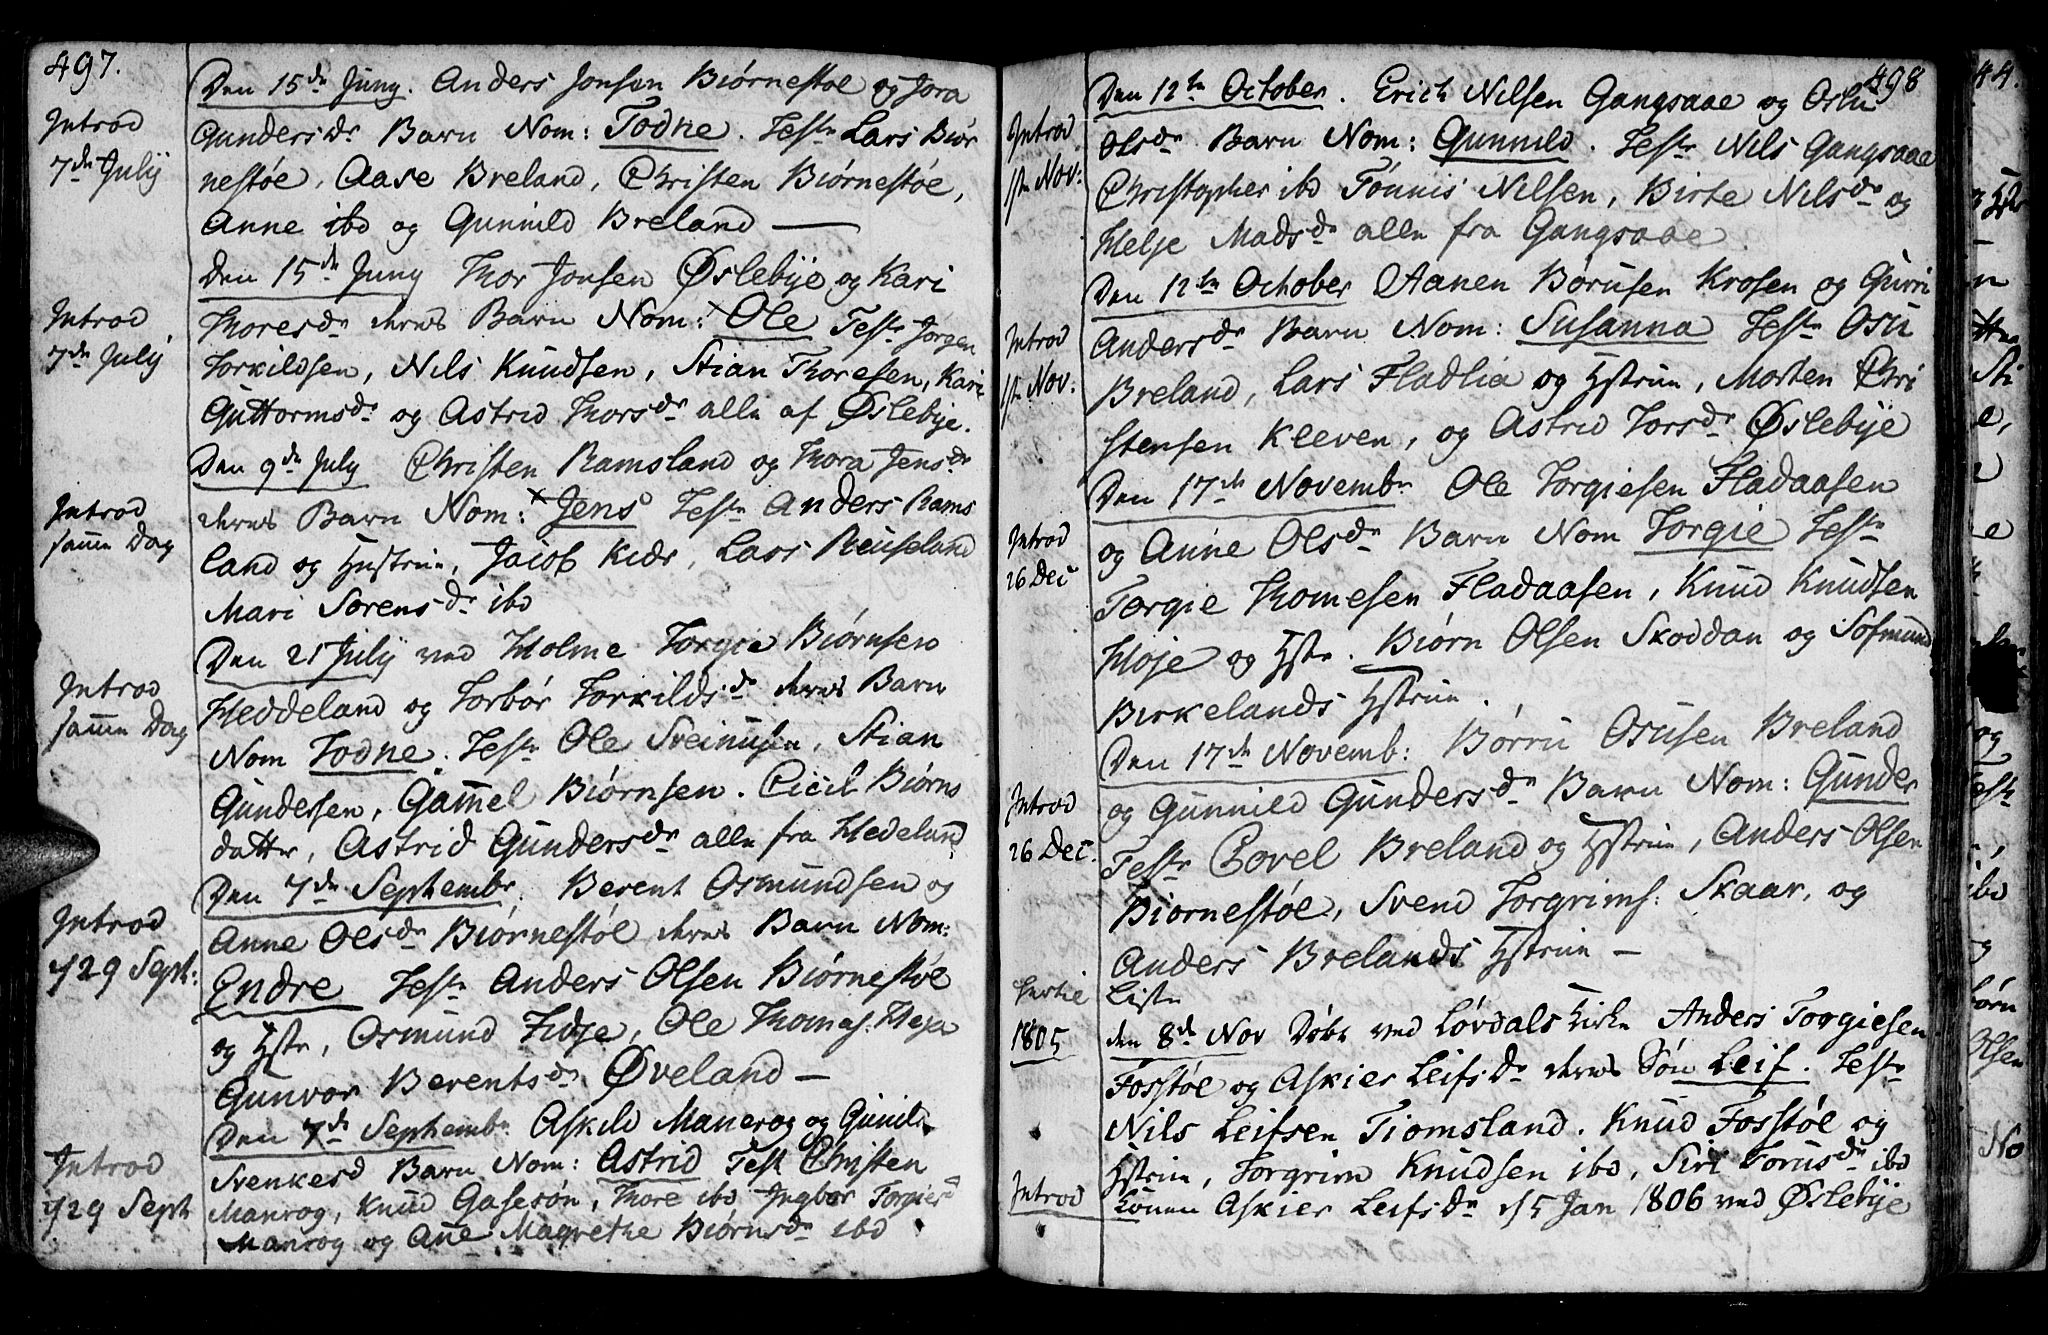 497.
Introd
7de July
Den 15de Juny. Anders Jonsen Biørnestøe og Jora
Gundersdr Barn Nom: Todne. Teste Lars Biør
nestøe, Aase Breland, Christen Biørnestøe,
Anne ibd og Gunnild Breland —
Introd
7de July
Den 15de Juny Thor Jonsen Øslebye og Kari
Thoresdr deres Barn Nom: Ole Teste Jørgen
Torkildsen, Nils Knudsen, Stian Thoresen, Kari
Guttormsdr og Astrid Thorsdr alle af Øslebye.
Introd
samme Dag
Den 9de July Christen Ramsland og Thora Jensdr
deres Barn Nom: Jens Teste Anders Rams
land og Hustrue, Jacob Kidr, Lars
Mari Sørensdr ibd
Introd
samme Dag
Den 21 July ved Holme Torgie Biørnsen
Heddeland og Torbor Torkildsdr deres Barn
Nom Todne. Teste Ole Sveinusen, Stian
Gundersen, Gamel Biørnsen. Cicil Biørns
datter, Astrid Gundersdr alle fra Hedeland
Introd
29 Sept:
Den 7de Septembr. Berent Osmundsen og
Anne Olsdr Biørnestøl deres Barn Nom:
Endre Teste Anders Olsen Biørnestøl
og Hstr, Osmund, Ole Thomas:
Gunvor Berentsdr Øveland —
Introd
29 Sept
Den 7de Septembr. Askild Manerog og Gunild
Svenkesd Barn Nom: Astrid Test Christen
Manrog, Knud Gasesøn, Thore ibd Ingbor Torgiersd
Manrog og Ane Magrethe Biørnsdr ibd
498
Introd
1ste Nov:
Den 12te October. Erich Nilsen Gangsaae og Oslu
Olsdr Barn Nom: Gunnild. Teste Nils Gangsaae
Christopher ibd Tønnis Nilsen, Birte Nilsdr og
Helje Madsdr alle fra Gangsaae.
Introd
1ste Nov:
Den 12te October Aanen Børusen Krosen og Gurri
Andersdr Barn Nom: Susanna Teste Osu
Breland, Lars Fladlia og Hstrue, Morten Chri
stensen Kleven, og Astrid Torsdr Øslebye
Introd
26 Dec
Den 17de Novembr Ole Torgiesen Fladaasen
og Anne Olsdr Barn Nom Torgie Teste
Torgie Thomesen Fladaasen, Knud Knudsen
Høje og Hstr. Biørn Olsen Skoddan og Sosmund
Birkelands Hstrue.
Introd
26 Dec.
Den 17de Novemb: Børru Osusen Breland
og Gunnild Gundersdr Barn Nom: Gunder
Teste Bovel Breland og Hstrue, Anders Olsen
Biørnestøe, Svend Torgrims: Skaar, og
Anders Brelands Hstrue —
Liste
1805
den 8de Nov Døbt ved Løvdals Kirke Anders Torgiesen
Fosstøl og Askier Leifsdr deres Søn Leif. Teste
Nils Leifsen Tiomsland. Knud Fosstøl og
Hstrue, Torgrim Knudsen ibd, Siri Torusdr ibd
Introd
Konen Askier Leifsdr d 5 Jan 1806 ved Øslebye